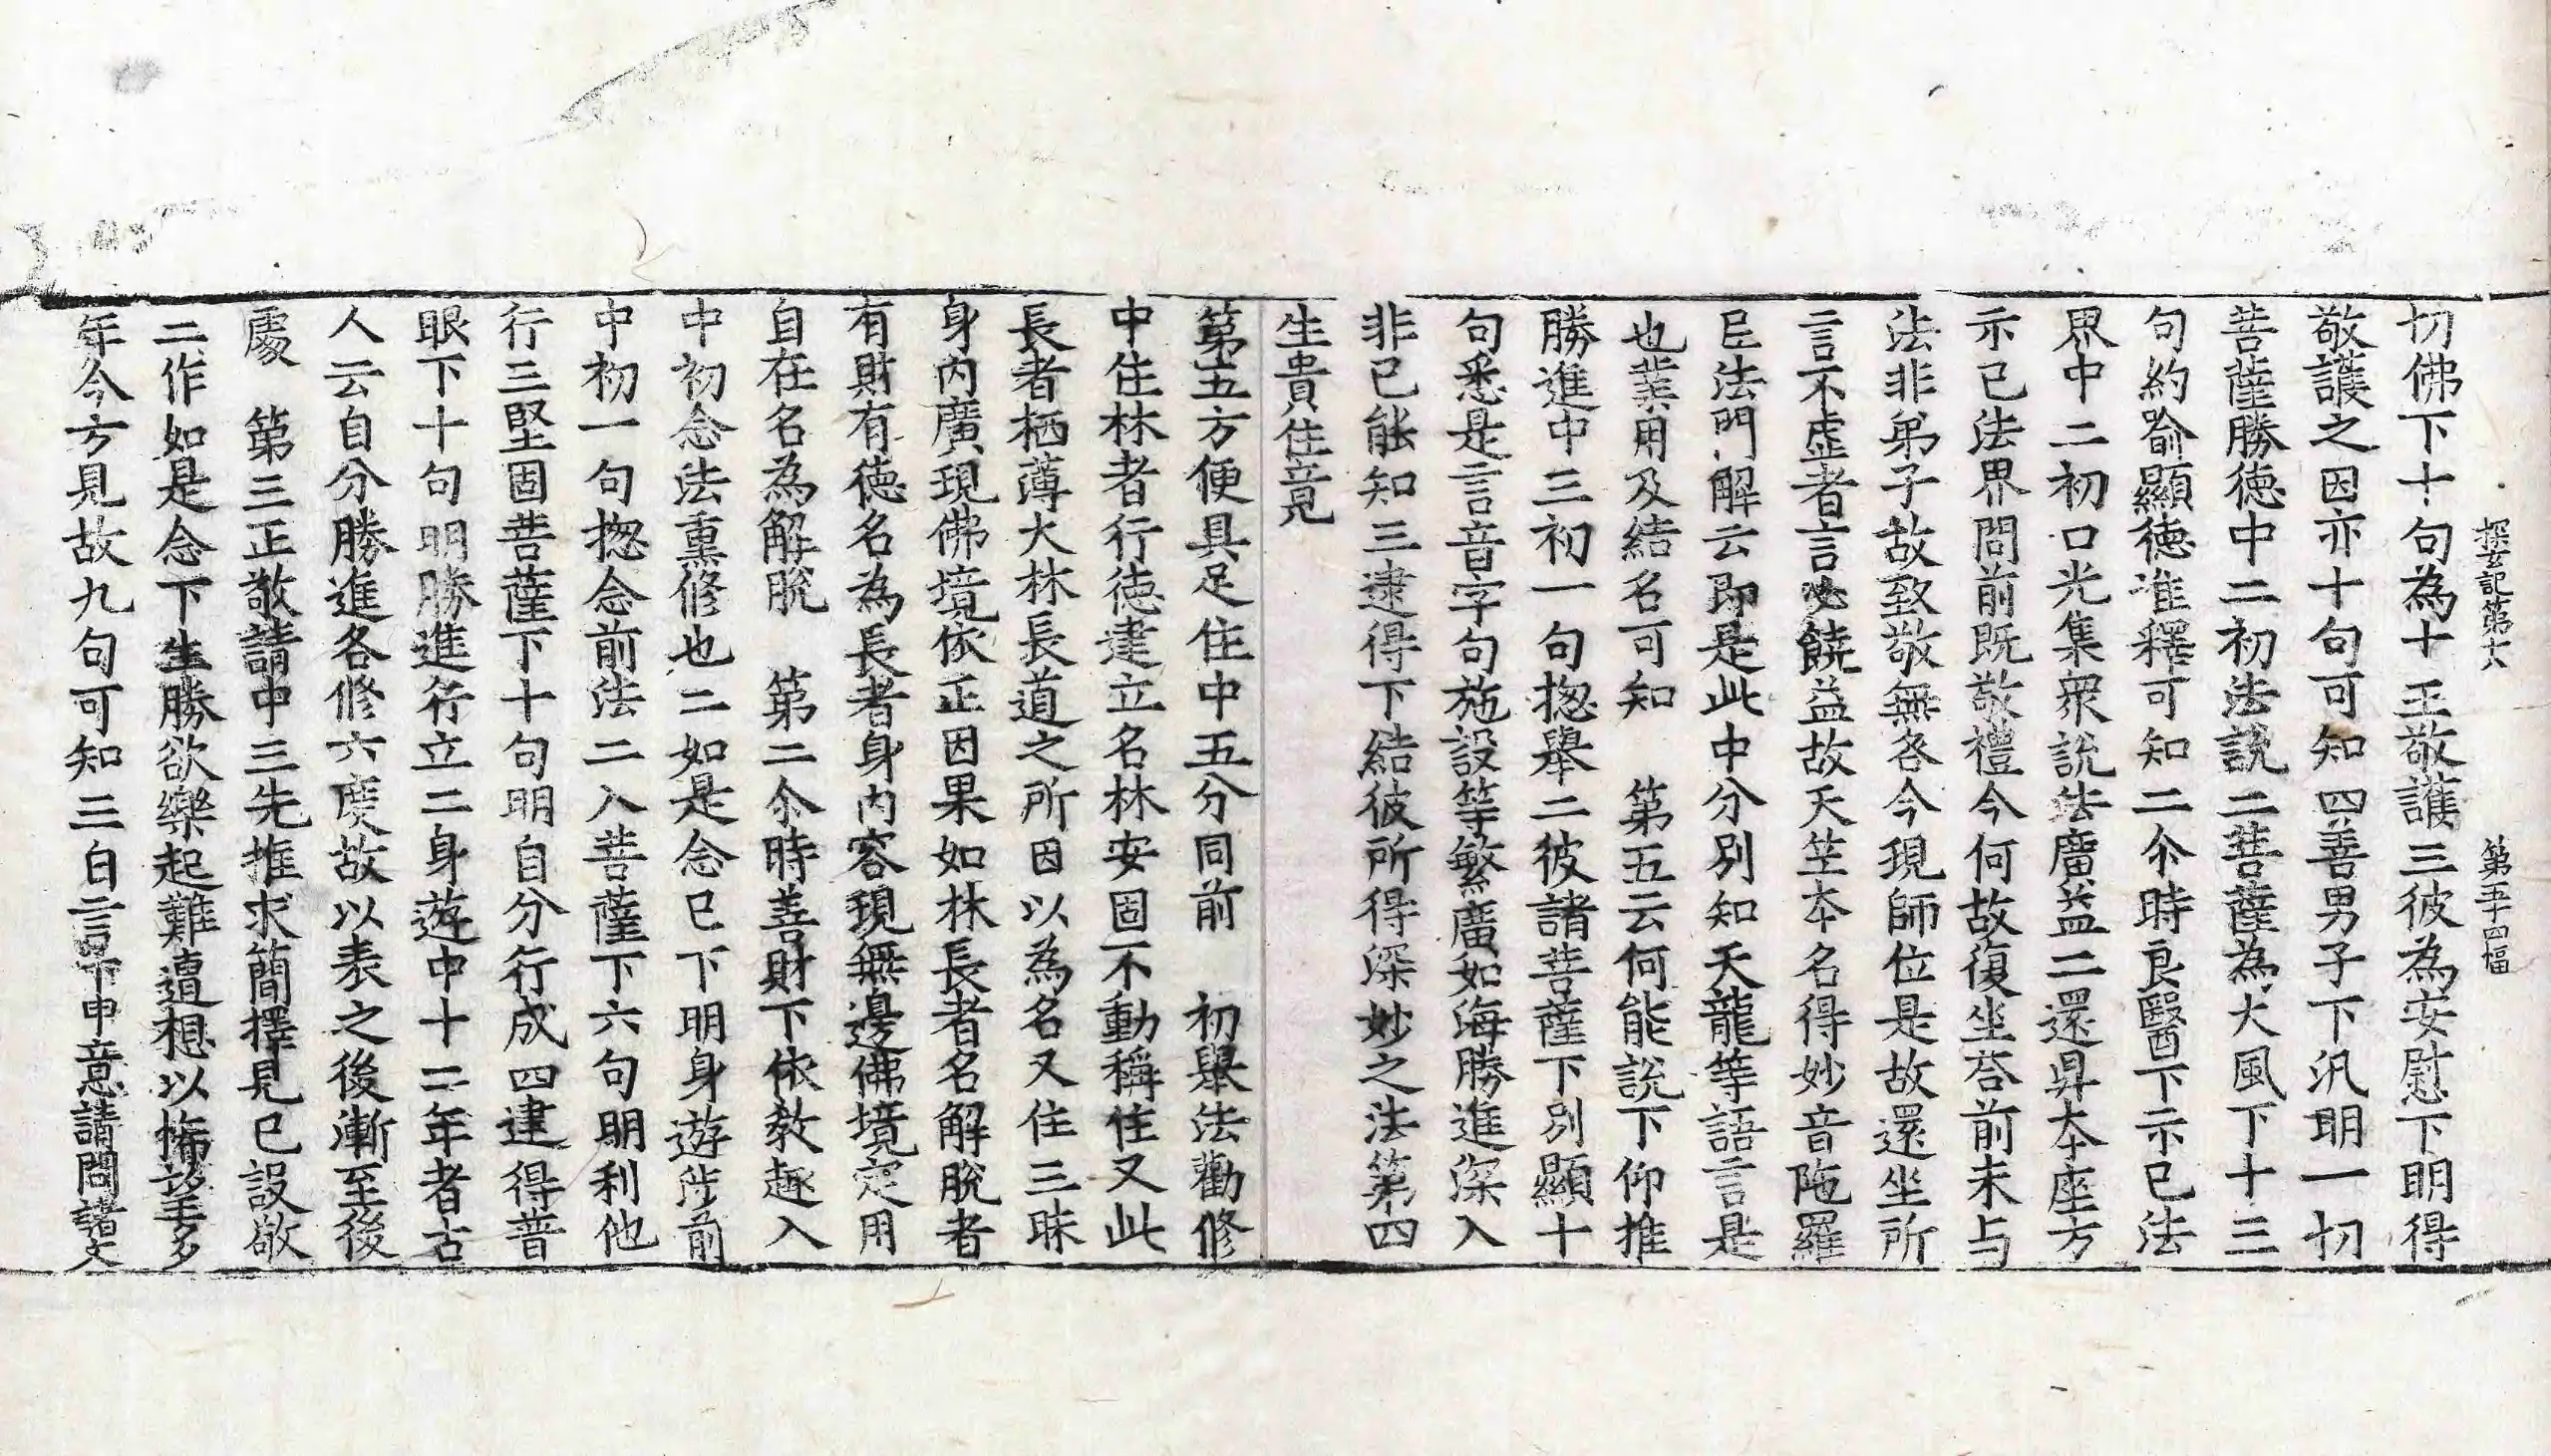 探玄記第十八 第五十四幅
切佛下十句為十王敬護三彼為安慰下明得
敬護之因亦十句可知四善男子下汎明一切
菩薩勝徳中二初法説二菩薩為大風下十三
句約喻顯徳准釋可知二尒時良醫下示已法
界中二初口光集衆説法廣益二還昇夲座方
示已法界問前既敬禮今何故復坐荅前未与
法非弟子故致敬無咎今現師位是故還坐所
言不虚者言必饒益故天竺夲名得妙音陁羅
𡰱法門解云即是此中分別知天龍等語言是
也業用及結名可知 第五云何能說下仰推
勝進中三初一句揔舉二彼諸菩薩下別顯十
句悉是言音字句施設等繁廣如海勝進深入
非已能知三逮得下結彼所得深妙之法第四
生貴住竟
第五方便具足住中五分同前 初舉法勸修
中住林者行徳建立名林安固不動稱住又此
長者栖薄大林長道之所因以為名又住三昧
身内廣現佛境依正因果如林長者名解脫者
有財有徳名為長者身内容現無邊佛境定用
自在名為解脫 第二尒時善財下依教趣入
中初念法熏修也二如是念已下明身遊陟前
中初一句揔念前法二入菩薩下六句明利他
行三堅固菩薩下十句明自分行成四逮得普
眼下十句明勝進行立二身遊中十二年者古
人云自分勝進各修六度故以表之後漸至後
處 第三正敬請中三先推求簡擇見已設敬
二作如是念下生勝欲樂起難遭想以悕望多
年今方見故九句可知三白言下申意請問諸文